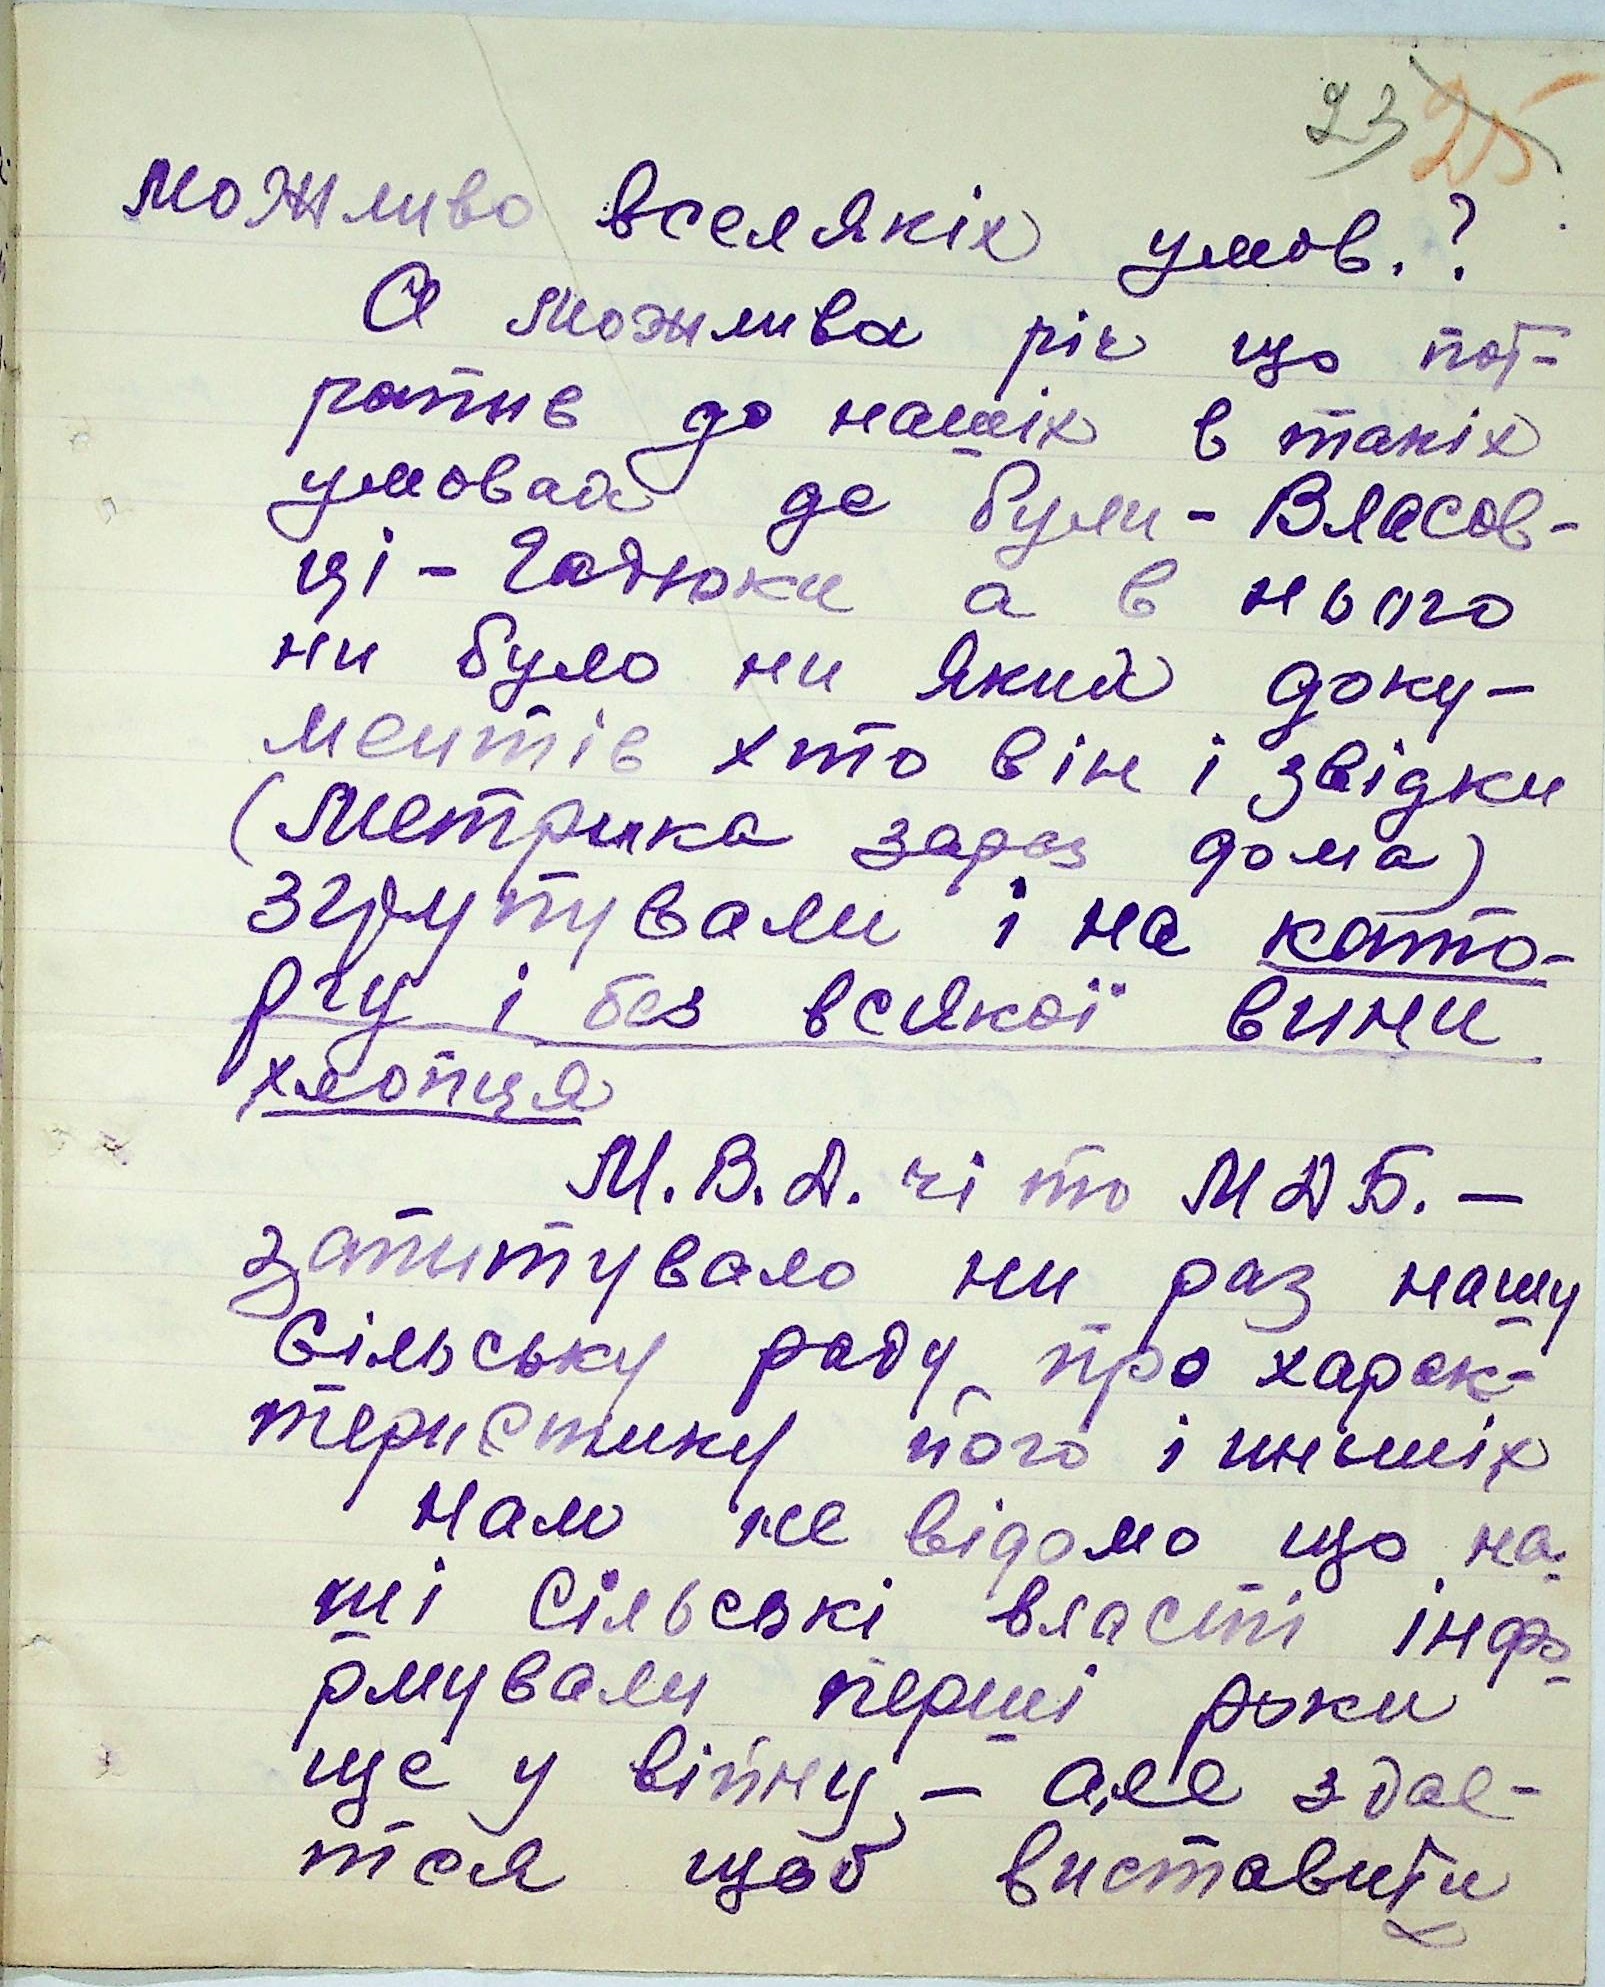 23 25
можливо вселякіх умов.?
А можлива річ що пот-
рапив до нашіх в такіх
умовах де були - Власов-
ці - Гадюки а в нього
ни було ни яких доку-
ментів хто він і звідки
(Метрика зараз дома)
згрупували і на като-
ргу і без всякої вини
хлопця
М.В.Д. чі то МДБ. -
запитувало ни раз нашу
сільську раду про харак-
теристику його і иньшіх
Нам не відомо що на-
ші сільські власті інфо-
рмували перші роки
ще у війну, - але здає-
тся щоб виставити